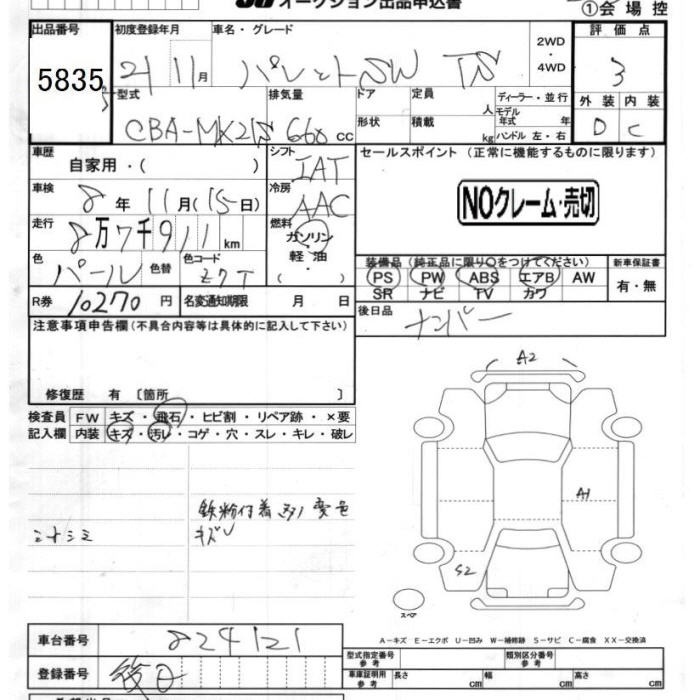 オークション出品申込書
①会場控
出品番号 初度登録年月 車名・グレード 2WD・4WD 評価点
5835 21 11月 パレットSW TS 3
型式 排気量 ドア 定員 人 ディーラー・並行 外装 内装
CBA-MK21S 660cc 形状 積載 kg モデル年式 年 ハンドル 左・右 D C
車歴 自家用・( ) シフト IAT セールスポイント (正常に機能するものに限ります)
車検 8年11月(15日) 冷房 AAC NOクレーム・売切
走行 8万7千911km 燃料 ガソリン・軽油・( )
装備品(純正品に限り○をつけてください) 新車保証書
色 パール 色替 色コード Z7T PS PW ABS エアB AW 有・無
SR ナビ TV カワ
R券 10270円 名変通知期限 月 日 後日品 ナンバー
注意事項申告欄(不具合内容等は具体的に記入して下さい)
修復歴 有 〔箇所 〕
検査員 FW キズ・飛石・ヒビ割・リペア跡・×要
記入欄 内装 キズ・汚レ・コゲ・穴・スレ・キレ・破レ
A2
A1
S2
鉄粉付着 変色
キズ
シートシミ
スペア
A-キズ E-エクボ U-凹み W-補修跡 S-サビ C-腐食 XX-交換済
車台番号 824121
登録番号 後日
型式指定番号 参考 類別区分番号 参考
車庫証明用 参考 長さ cm 幅 cm 高さ cm